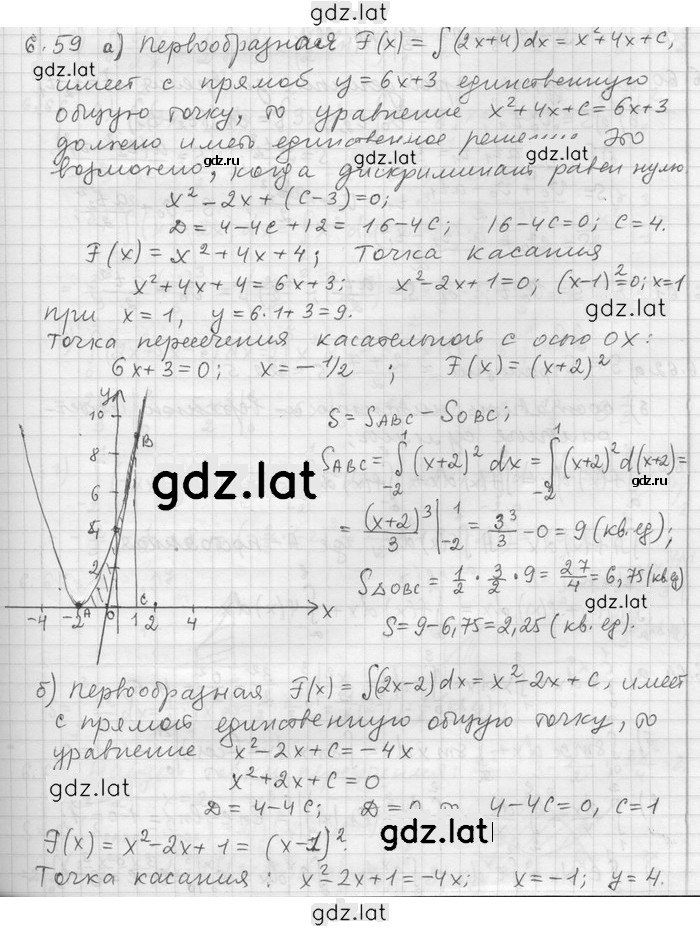 gdz.lat
6.59 а) Первообразная F(x) = ∫(2x+4)dx = x²+4x+C,
gdz.lat
имеет с прямой y = 6x+3 единственную
общую точку, то уравнение x²+4x+C=6x+3
должно иметь единственное Это
возможно, когда дискриминант равен нулю
gdz.ru gdz.ru
x²-2x+(C-3)=0;
D = 4-4C+12 = 16-4C; 16-4C=0; C=4.
F(x) = x²+4x+4; Точка касания
x²+4x+4=6x+3; x²-2x+1=0; (x-1)²=0; x=1
при x=1, y=6·1+3=9.
gdz.lat
Точка пересечения касательной с осью OX:
6x+3=0; x=-1/2 ; F(x)=(x+2)²
y
10
8
6
4
2
-4 -2 A 0 1 C 2 4 x
B
gdz.lat
S = S ABC - S OBC;
S ABC = ∫₋₂¹ (x+2)² dx = ∫₋₂¹ (x+2)² d(x+2) =
= (x+2)³/3 |₋₂¹ = 3³/3 - 0 = 9 (кв.ед);
S△OBC = 1/2 · 3/2 · 9 = 27/4 = 6,75 (кв.ед)
gdz.lat
S = 9-6,75 = 2,25 (кв.ед).
б) Первообразная F(x) = ∫(2x-2)dx = x²-2x+C, имеет
с прямой единственную общую точку, то
уравнение x²-2x+C=-4x
gdz.lat
x²+2x+C=0
D = 4-4C; D=0 4-4C=0, C=1
F(x) = x²-2x+1 = (x-1)².
gdz.lat
Точка касания: x²-2x+1=-4x; x=-1; y=4.
gdz.lat